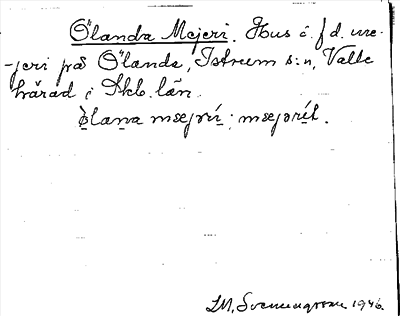 Ölanda Mejeri. Hus å f.d. me-
-jeri på Ölanda, Istrum s:n, Valle
härad i Skb. län.
ø̱laṉa mæjərí̱ ; mæjərí̱t.
I.M. Svenningsson 1946.